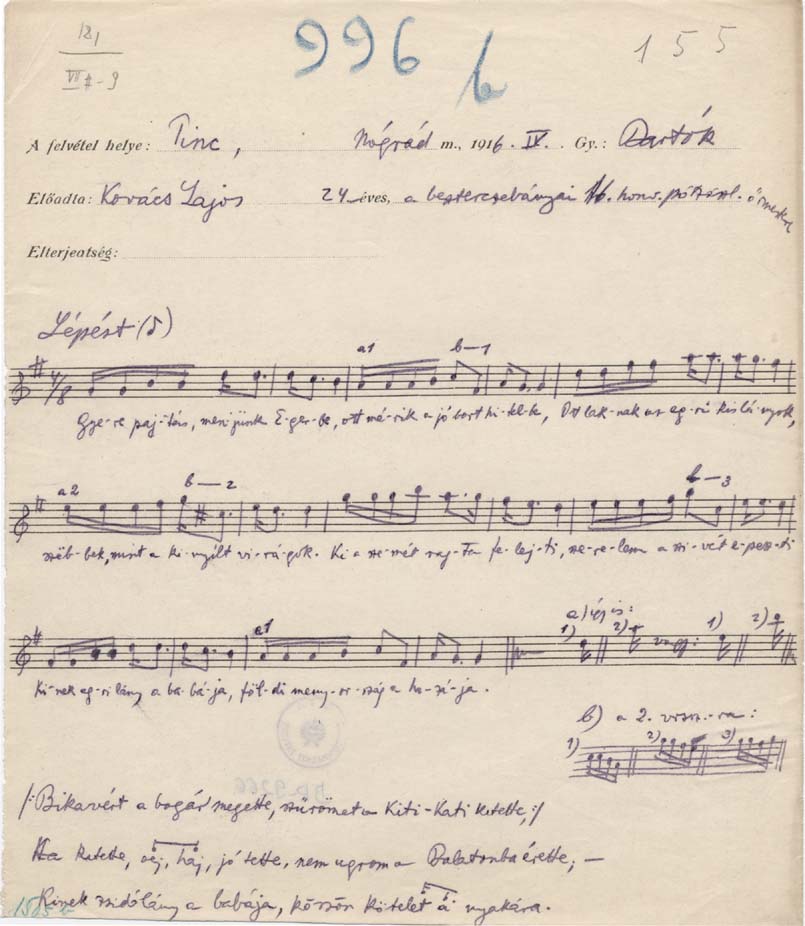 121
VII #-9
996 b
155
A felvétel helye: Tinc, Nógrád m., 1916. IV. Gy.: Bartók
Előadta: Kovács Lajos 24 éves, a besztercebányai 16. honv. pótzászl. őrmestere
Elterjeatség:
Lépést (♪)
a1 b—1
4/8
Gye-re paj-tás, menjünk E-ger-be, ott mé-rik a jó bort hi-tel-be, Ott lak-nak az eg-ri kis lá-nyok,
a2 b—2 b—3
szeb-bek, mint a ki-nyílt vi-rá-gok. Ki a sze-mét raj-ta fe-lej-ti, sze-re-lem a szi-vét e-pesz-ti
a1
Ki-nek eg-ri lány a ba-bá-ja, föl-di meny-or-szág a ha-zá-ja.
a) így is:
1) 2) vagy: 1) 2)
b) a 2. vrsz.-ra:
1) 2) 3)
/: Bikavért a bogár megette, szűrömet a Kiti-Kati ketette, :/
Ha ketette, ëj, haj, jó tette, nem ugrom a Balatonba érette; —
Kinek zsidólány a babája, kössön kötelet a nyakára.
1505 b